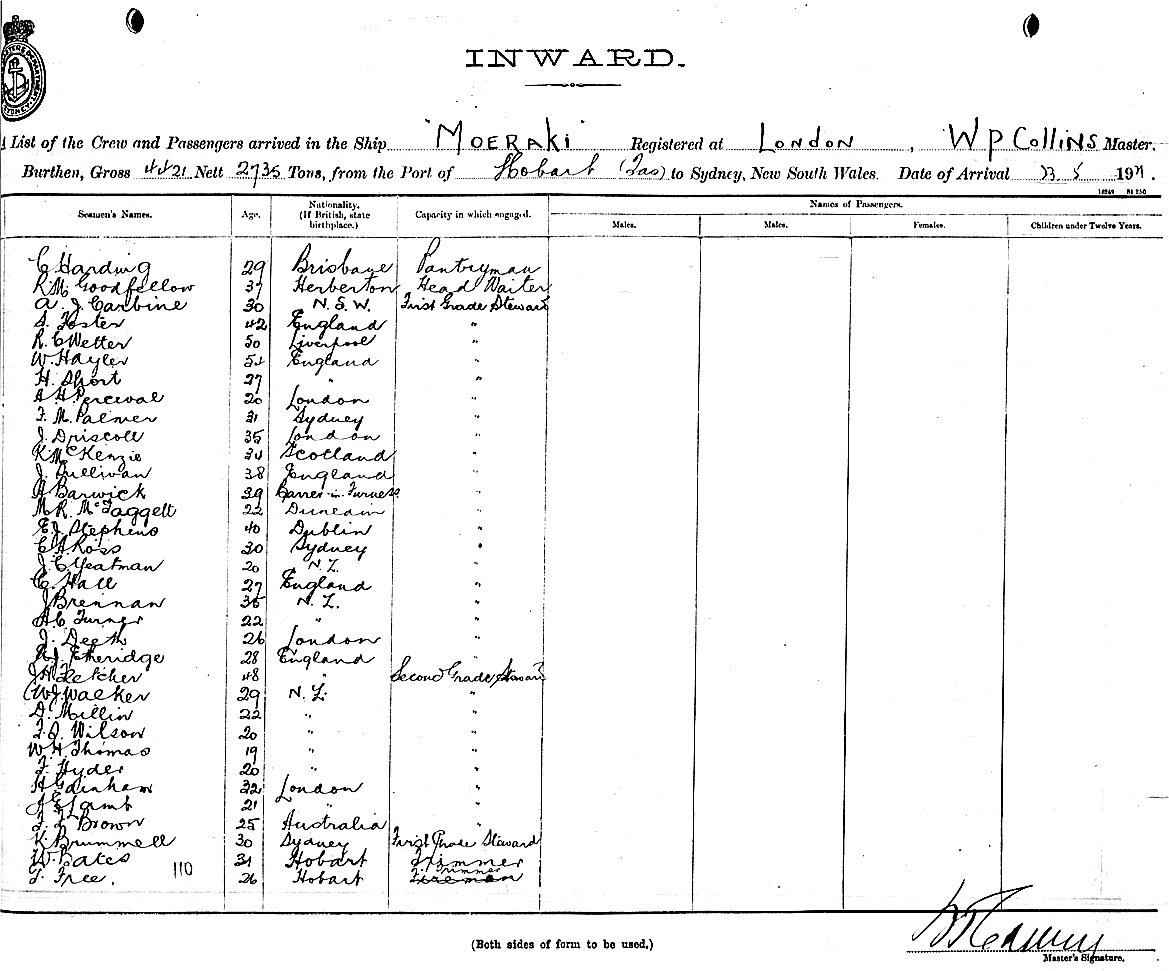 INWARD.
List of the Crew and Passengers arrived in the Ship "MOERAKI" Registered at LONDON, W P COLLINS Master,
Burthen, Gross 4421 Nett 2735 Tons, from the Port of Hobart (Tas) to Sydney, New South Wales. Date of Arrival 191
Seamen's Names. Age. Nationality. (If British, state birthplace.) Capacity in which engaged. Names of Passengers.
Males. Males. Females. Children under Twelve Years.
C Harding 29 Brisbane Pantryman
R M Goodfellow 37 Herberton Head Waiter
A. J. Carbine 30 N. S. W. First Grade Steward
S. Foster 42 England "
R. C Wetter 50 Liverpool "
W. Hayler 54 England "
H. Short 27 " "
A H Perceval 20 London "
F. M. Palmer 31 Sydney "
J. Driscoll 35 London "
K McKenzie 34 Scotland "
J. Sullivan 38 England "
A Barwick 39 Barrer-in-Furness "
M R. McTaggett 22 Dunedin "
E J Stephens 40 Dublin "
C A Ross 30 Sydney "
J. C Yeatman 20 N. Z. "
C. Hall 27 England "
J Brennan 36 N. Z. "
A C Turner 22 " "
J. Deeth 26 London "
A J Etheridge 28 England "
J H Fletcher 48 " Second Grade Steward
W J Walker 29 N. Z. "
D. Millin 22 " "
F. J. Wilson 20 " "
W H Thomas 19 " "
F. Hyder 20 " "
H Gainham 32 London "
J G Lamb 21 " "
F. L Brown 25 Australia "
K. Brummell 30 Sydney First Grade Steward
W. Bates 31 Hobart Trimmer
F. Free. 110 26 Hobart Trimmer
(Both sides of form to be used.)
Master's Signature.